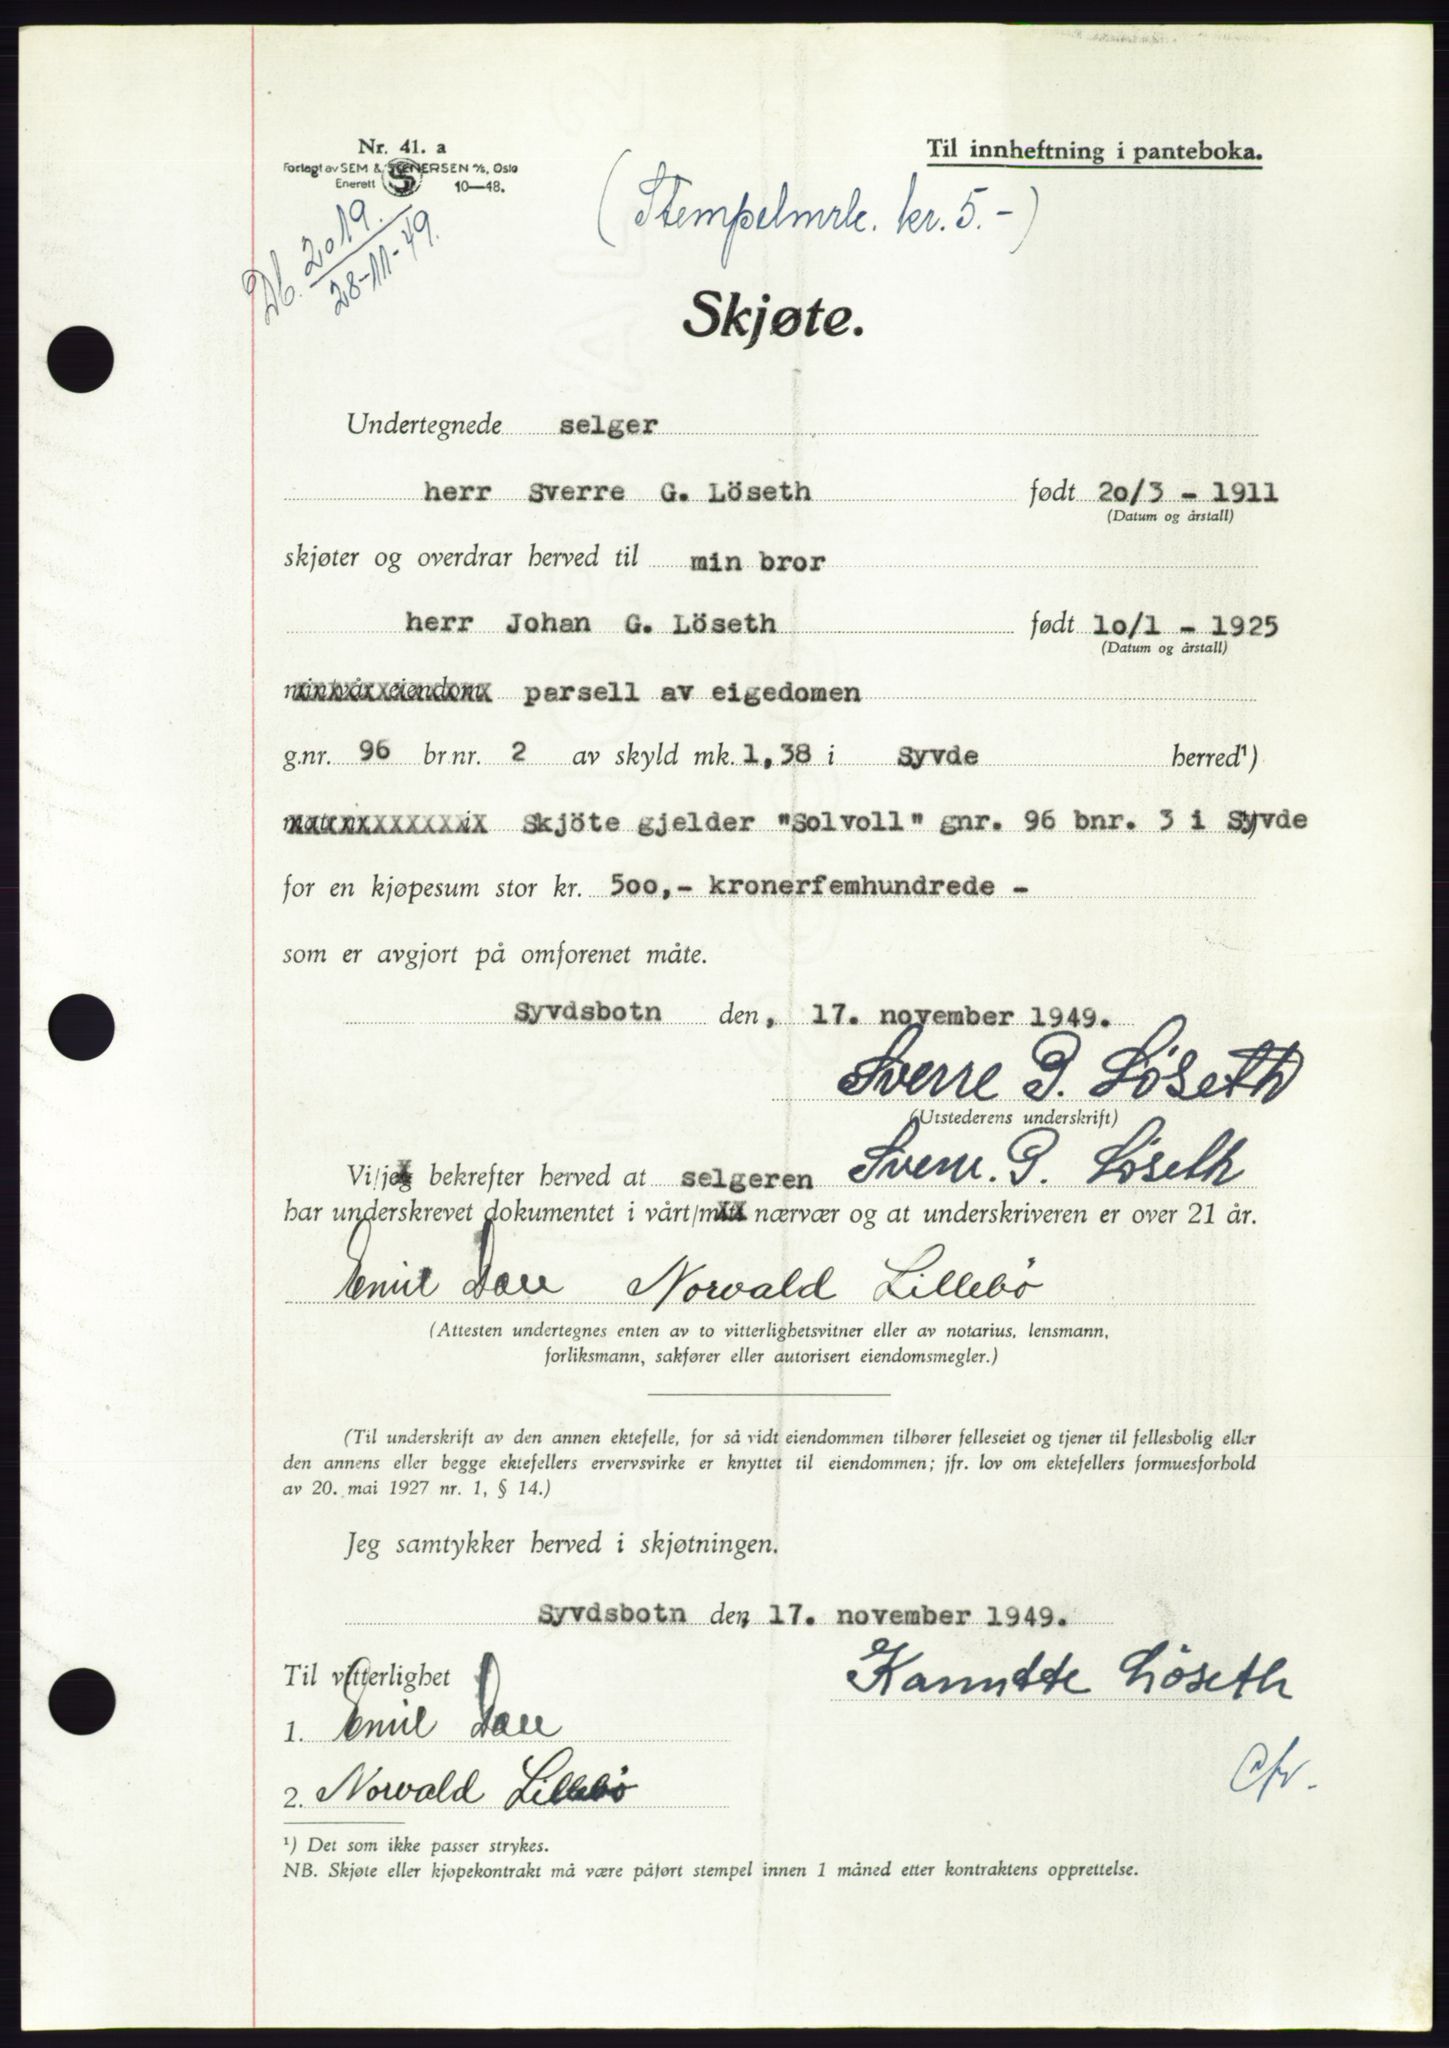 Nr. 41. a
Forlagt av SEM & STENERSEN A/S, Oslo
Enerett 10—48.
Til innheftning i panteboka.
(Stempelmrk. kr. 5.-)
Db. 2019.
28-11-49.
Skjøte.
Undertegnede selger
herr Sverre G. Löseth født 20/3 - 1911
(Datum og årstall)
skjøter og overdrar herved til min bror
herr Johan G. Löseth født 10/1 - 1925
(Datum og årstall)
min/vår eiendom parsell av eigedomen
g.nr. 96 br.nr. 2 av skyld mk. 1,38 i Syvde herred¹)
Skjöte gjelder "Solvoll" gnr. 96 bnr. 3 i Syvde
for en kjøpesum stor kr. 500,- kronerfemhundrede -
som er avgjort på omforenet måte.
Syvdsbotn den, 17. november 1949.
Sverre G. Löseth
(Utstederens underskrift)
Vi/jeg bekrefter herved at selgeren Sverre. G. Löseth
har underskrevet dokumentet i vårt/mitt nærvær og at underskriveren er over 21 år.
Emil Norvald Lillebö
(Attesten undertegnes enten av to vitterlighetsvitner eller av notarius, lensmann,
forliksmann, sakfører eller autorisert eiendomsmegler.)
(Til underskrift av den annen ektefelle, for så vidt eiendommen tilhører felleseiet og tjener til fellesbolig eller
den annens eller begge ektefellers ervervsvirke er knyttet til eiendommen; jfr. lov om ektefellers formuesforhold
av 20. mai 1927 nr. 1, § 14.)
Jeg samtykker herved i skjøtningen.
Syvdsbotn den, 17. november 1949.
Til vitterlighet
Löseth
1. Emil
2. Norvald Lillebö
Cfr.
¹) Det som ikke passer strykes.
NB. Skjøte eller kjøpekontrakt må være påført stempel innen 1 måned etter kontraktens opprettelse.